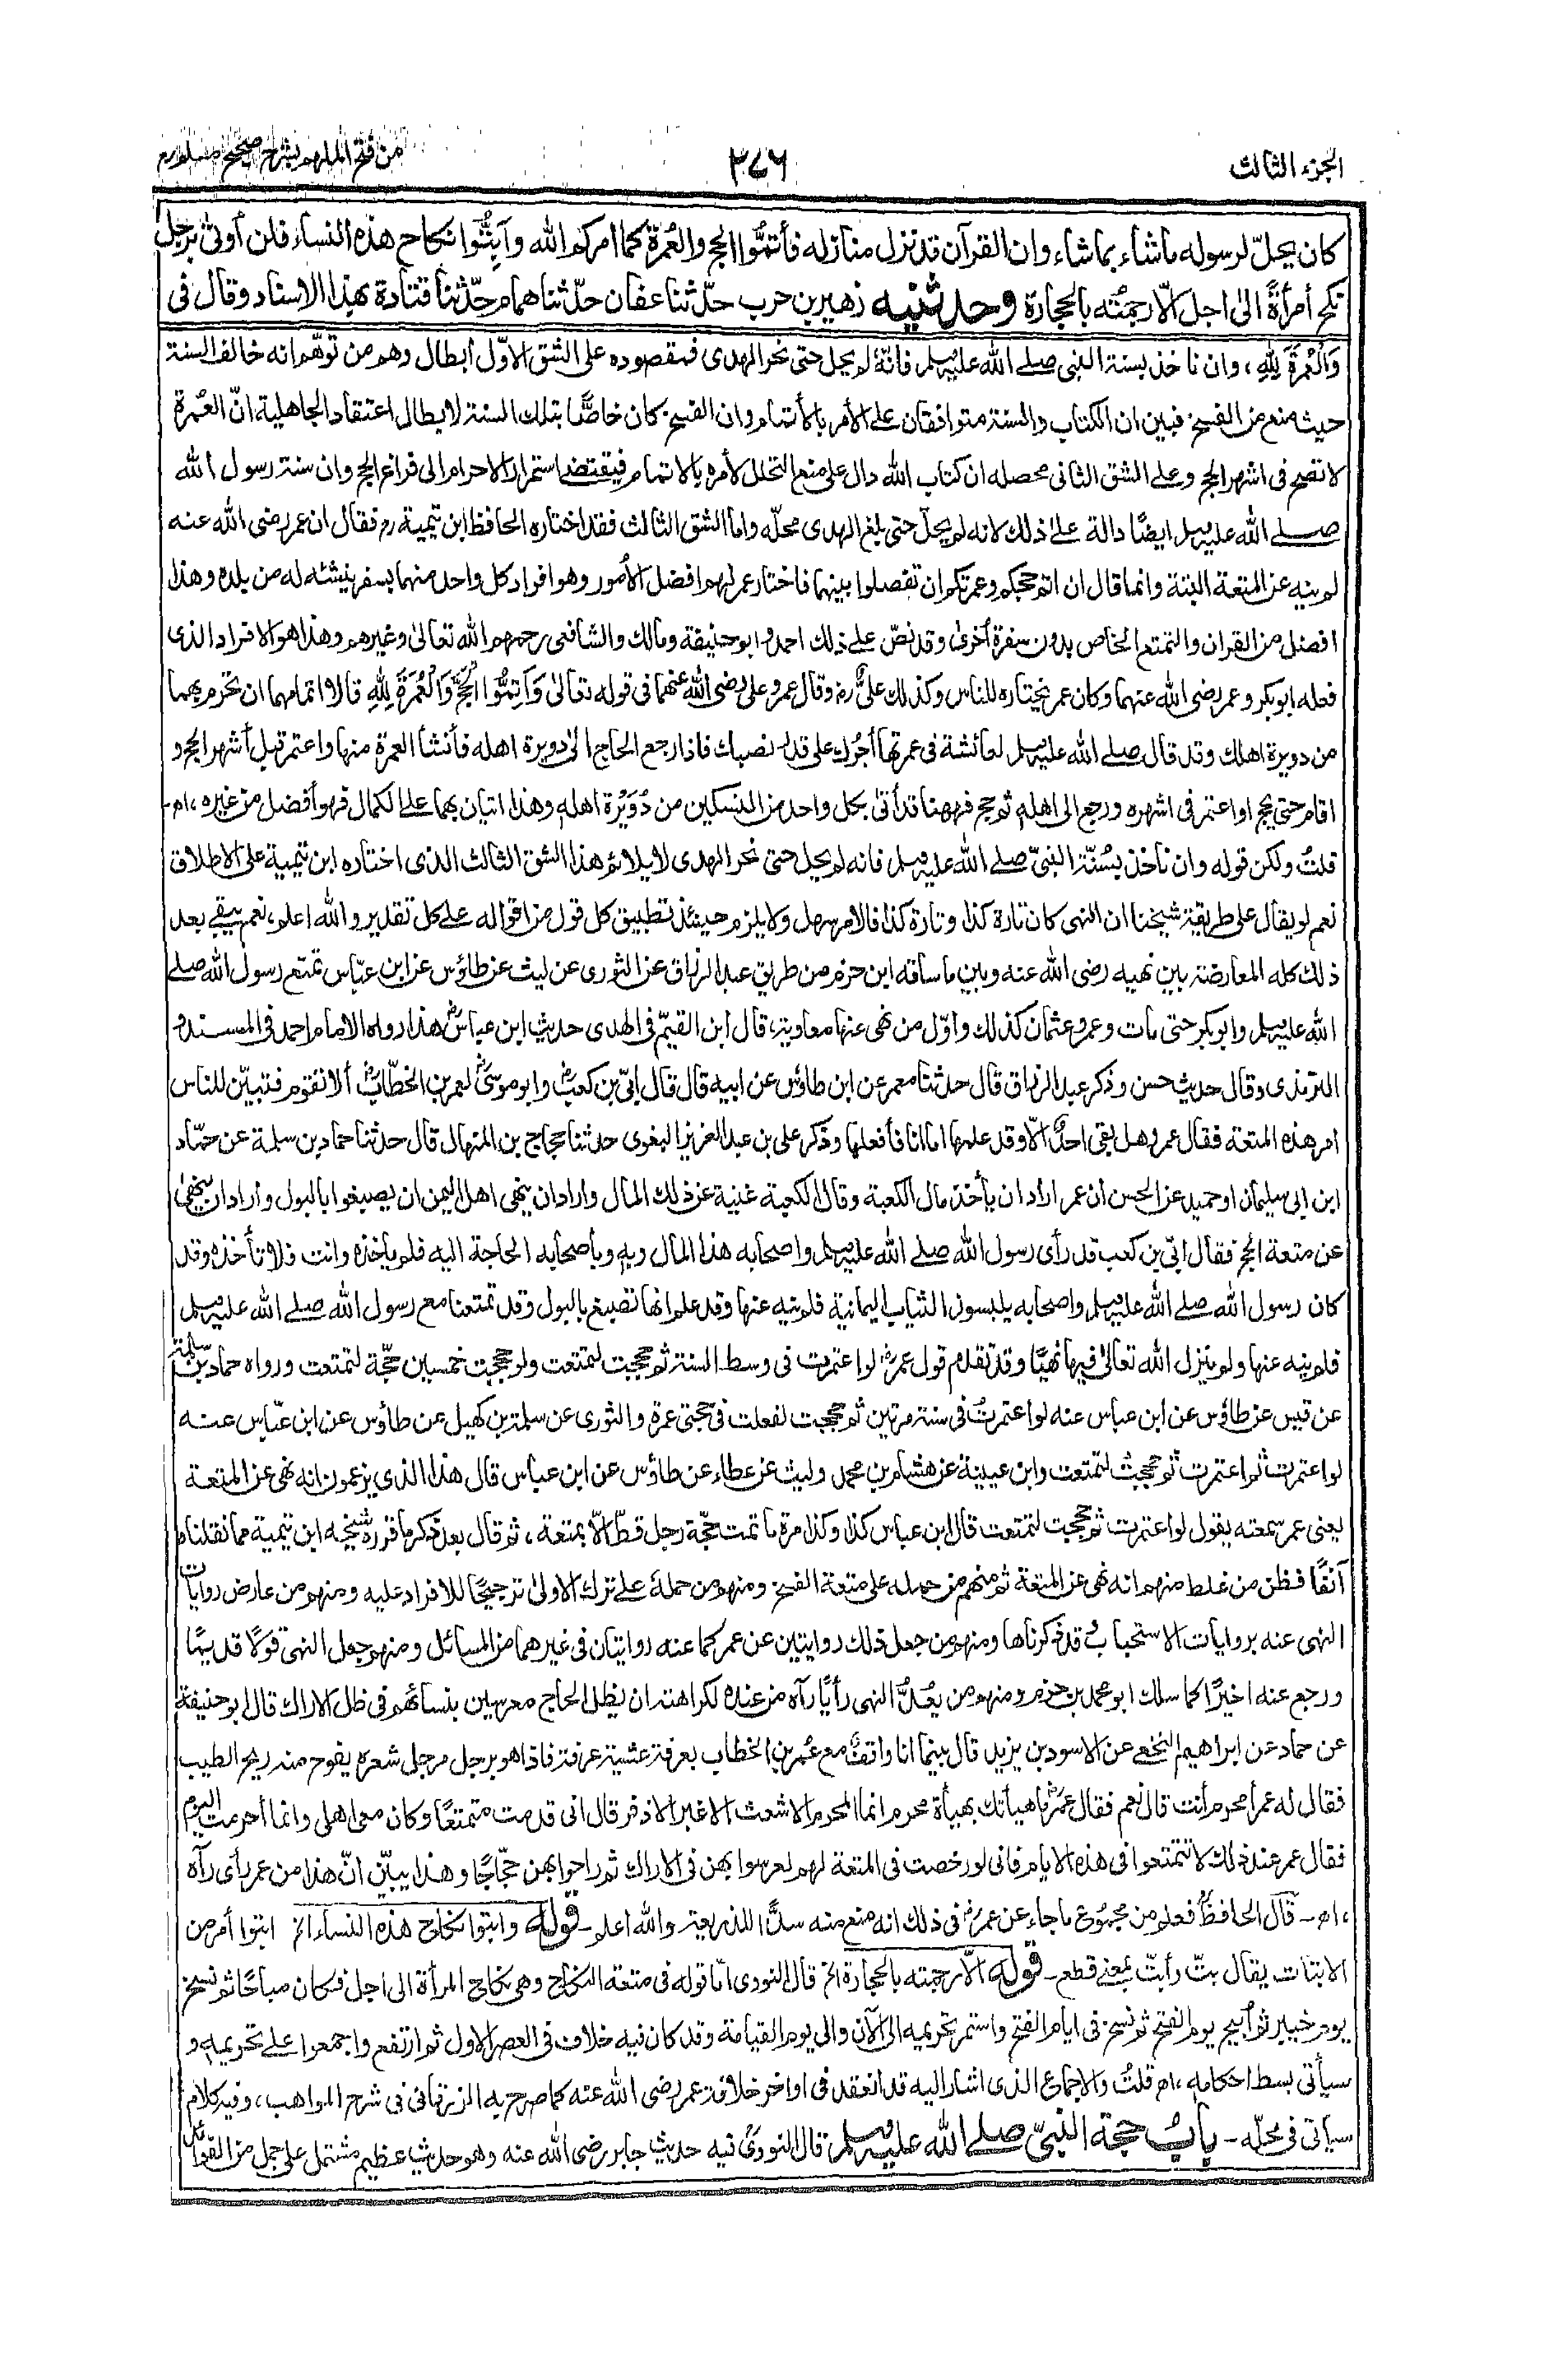 الجزء الثالث
٣٤٦
من فتح الملهم بشرح صحيح مسلم
كان يحلّ لرسوله ما شاء بما شاء وان القرآن قد نزل منازله فأتمّوا الحج والعُمرة كما امركم الله وأبِتُّوا نكاح هذه النساء فلن أوتى برجل
نكح أمرأةً الىٰ اجل الّا رجمتُه بالحجارة وحدثنيه زهير بن حرب حدّثنا عفان حدّثنا همام حدّثنا قتادة بهذا الاسناد وقال فى
وَالْعُمْرَةَ لِلّٰهِ، وان ناخذ بسنة النبى صلى الله عليه وسلم فانّه لم يحل حتى نحر الهدى فمقصوده على الشق الاوّل ابطال وهم من توهّم انه خالف السنة
حيث منع من الفسخ فبين ان الكتاب والسنة متوافقان على الأمر بالأتمام وان الفسخ كان خاصًّا بتلك السنة لابطال اعتقاد الجاهلية انّ العُمرة
لا تصح فى اشهر الحج وعلى الشق الثانى محصله ان كتاب الله دال على منع التحلل لأمره بالاتمام فيقتضى استمرار الاحرام الى فراغ الحج وان سنة رسول الله
صلى الله عليه وسلم ايضًا دالة علىٰ ذلك لانه لم يحلّ حتى بلغ الهدى محلّه واما الشق الثالث فقد اختاره الحافظ ابن تيمية رح فقال ان عمر رضى الله عنه
لم ينه عن المتعة البتة وانما قال ان اتم حجكم وعمرتكم ان تفصلوا بينهما فاختار عمر لهم افضل الأمور وهو افراد كل واحد منهما بسفر ينشئه له من بلده وهذا
افضل من القران والتمتع الخاص بدون سفرة أخرى وقد نصّ على ذلك احمد وابو حنيفة ومالك والشافعى رحمهم الله تعالىٰ وغيرهم وهذا هو الافراد الذى
فعله ابو بكر وعمر رضى الله عنهما وكان عمر يختاره للناس وكذلك علىّ رض وقال عمر وعلى رضى الله عنهما فى قوله تعالىٰ وَأَتِمُّوا الْحَجَّ وَالْعُمْرَةَ لِلّٰهِ قالا اتمامهما ان تحرم بهما
من دويرة اهلك وقد قال صلى الله عليه وسلم لعائشة فى عمرتها أجرُك على قدر نصبك فاذا رجع الحاج الىٰ دويرة اهله فأنشأ العمرة منها واعتمر قبل أشهر الحج و
اقام حتى يحج او اعتمر فى اشهره ورجع الى اهله ثم حج فههنا قد أتىٰ بكل واحد من النسكين من دُوَيْرة اهله وهذا اتيان بهما على الكمال فهو أفضل من غيره، اھ۔
قلتُ ولكن قوله وان ناخذ بسُنّة النبىّ صلى الله عليه وسلم فانه لم يحل حتى نحر الهدى لا يلائم هذا الشق الثالث الذى اختاره ابن تيمية على الاطلاق
نعم لو يقال على طريقة شيخنا ان النهى كان تارة كذا وتارة كذا فالامر سهل ولا يلزم حينئذ تطبيق كل قول من اقواله على كل تقدير والله اعلم، نعم يبقى بعد
ذلك كله المعارضة بين نهيه رضى الله عنه وبين ما ساقه ابن حزم من طريق عبد الرزاق عن الثورى عن ليث عن طاؤس عن ابن عبّاس تمتع رسول الله صلى
الله عليه وسلم وابو بكر حتى مات وعمر وعثمان كذلك واوّل من نهى عنها معاوية، قال ابن القيّم فى الهدى حديث ابن عباس رض هذا رواه الامام احمد فى المسند و
الترمذى وقال حديث حسن وذكر عبد الرزاق قال حدثنا معمر عن ابن طاؤس عن ابيه قال قال ابىّ بن كعب رض وابو موسى رض لعمر بن الخطّاب رض ألا تقوم فتبيّن للناس
امر هذه المتعة فقال عمر وهل بقى احدٌ الّا وقد علمها اما انا فأفعلها وذكر على بن عبد العزيز البغوى حدثنا حجاج بن المنهال قال حدثنا حماد بن سلمة عن حمّاد
ابن ابى سليمان او حميد عن الحسن ان عمر اراد ان يأخذ مال الكعبة وقال الكعبة غنية عن ذلك المال واراد ان ينهى اهل اليمن ان يصبغوا بالبول واراد ان ينهىٰ
عن متعة الحج فقال ابىّ بن كعب قد رأى رسول الله صلى الله عليه وسلم واصحابه هذا المال وبه وبأصحابه الحاجة اليه فلم يأخذه وانت فلا تأخذه وقد
كان رسول الله صلى الله عليه وسلم واصحابه يلبسون الثياب اليمانية فلم ينه عنها وقد علم انها تصبغ بالبول وقد تمتعنا مع رسول الله صلى الله عليه وسلم
فلم ينه عنها ولم ينزل الله تعالىٰ فيها نهيًا وقد تقدم قول عمر رض لو اعتمرت فى وسط السنة ثم حججت لتمتعت ولو حججت خمسين حجّة لتمتعت ورواه حماد بن سلمة
عن قيس عن طاؤس عن ابن عباس عنه لو اعتمرتُ فى سنة مرتين ثم حججت لفعلت فى حجتى عمرة والثورى عن سلمة بن كهيل عن طاؤس عن ابن عبّاس عنه
لو اعتمرت ثم اعتمرت ثم حججت لتمتعت وابن عيينة عن هشام بن محمد وليث عن عطاء عن طاؤس عن ابن عباس قال هذا الذى يزعمون انه نهى عن المتعة
يعنى عمر سمعته يقول لو اعتمرت ثم حججت لتمتعت قال ابن عباس كذا وكذا مرة ما تمت حجّة رجل قطّ الّا بمتعة، ثم قال بعد ذكر ما قرره شيخه ابن تيمية مما نقلناه
آنفًا فظن من غلط منهم انه نهى عن المتعة ثم منهم من حمله على متعة الفسخ ومنهم من حمله على ترك الاولىٰ ترجيحًا للافراد عليه ومنهم من عارض روايات
النهى عنه بروايات الاستحباب وقد ذكرناها ومنهم من جعل ذلك روايتين عن عمر كما عنه روايتان فى غيرهما من المسائل ومنهم جعل النهى قولًا قديمًا
ورجع عنه اخيرًا كما سلك ابو محمد بن حزم ومنهم من يعُدّ النهى رأيًا رآه من عنده لكراهته ان يظل الحاج معرسين بنسائهم فى ظل الاراك قال ابو حنيفة
عن حماد عن ابراهيم النخعى عن الاسود بن يزيد قال بينما انا واقفٌ مع عُمر بن الخطاب بعرفة عشية عرفة فاذا هو برجل مرجل شعره يفوح منه ريح الطيب
فقال له عمر أمحرم أنت قال نعم فقال عمر رض ما هيأتك بهيأة محرم انما المحرم الاشعث الاغبر الاذفر قال انى قدمت متمتعًا وكان معى اهلى وانما أحرمت اليوم
فقال عمر عند ذلك لا تتمتعوا فى هذه الايام فانى لو رخصت فى المتعة لهم لعرسوا بهن فى الاراك ثم راحوا بهن حجّاجًا وهذا يبيّن انّ هذا من عمر رأى رآه
، اھ۔ قال الحافظ رح فعلم من مجموع ما جاء عن عمر رض فى ذلك انه منع منه سدًّا للذريعة والله اعلم۔ قوله وابتوا نكاح هذه النساء الخ ابتوا أمر من
الابتات يقال بتّ وأبتّ بمعنى قطع۔ قوله الّا رجمته بالحجارة الخ قال النووى امّا قوله فى متعة النكاح وهى نكاح المرأة الى اجل فكان مباحًا ثم نسخ
يوم خيبر ثم أبيح يوم الفتح ثم نسخ فى ايام الفتح واستمر تحريمه الى الآن والى يوم القيامة وقد كان فيه خلاف فى العصر الاول ثم ارتفع واجمعوا على تحريمه و
سيأتى بسط احكامه، اھ قلتُ والاجماع الذى اشار اليه قد انعقد فى اواخر خلافة عمر رضى الله عنه كما صرح به الزرقانى فى شرح المواهب، وفيه كلام
سيأتى فى محلّه۔ بابُ حجة النبىّ صلى الله عليه وسلم قال النووى فيه حديث جابر رضى الله عنه وهو حديث عظيم مشتمل على جمل من الفوائد